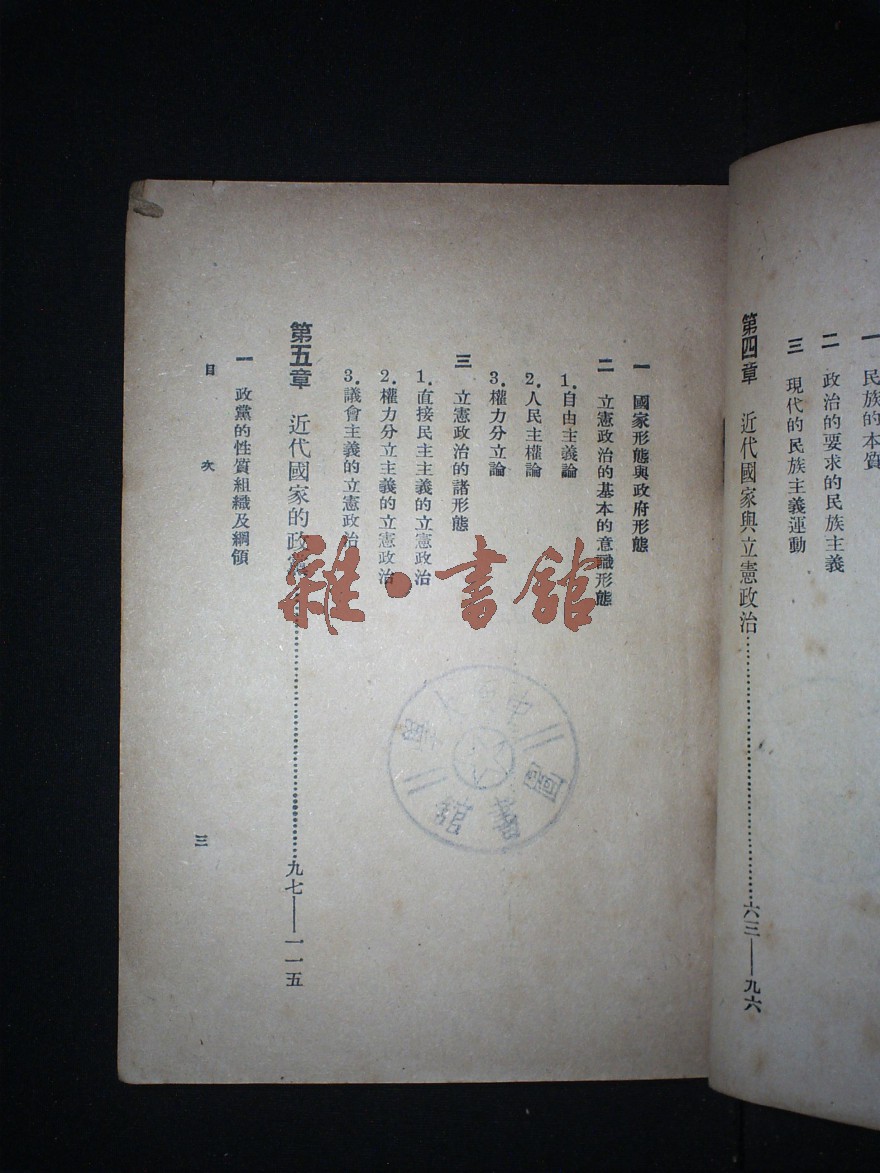 一 民族的本質
二 政治的要求的民族主義
三 現代的民族主義運動
第四章 近代國家與立憲政治……六三——九六
一 國家形態與政府形態
二 立憲政治的基本的意識形態
1.自由主義論
2.人民主權論
3.權力分立論
三 立憲政治的諸形態
1.直接民主主義的立憲政治
2.權力分立主義的立憲政治
3.議會主義的立憲政治
第五章 近代國家的政黨……九七——一一五
一 政黨的性質組織及綱領
目次
三
雜·書館